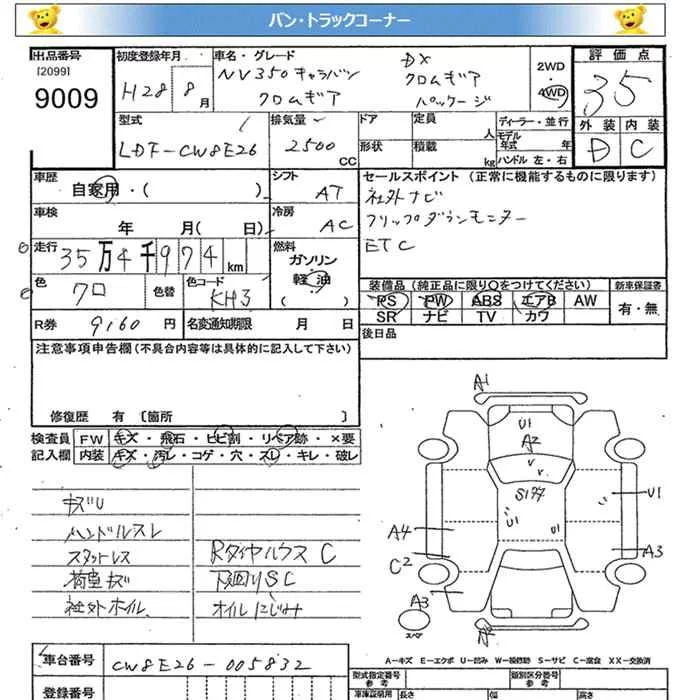 バン・トラックコーナー
出品番号 初度登録年月 車名・グレード 評価点
[2099] 9009
H28 8月
NV350キャラバン DX
クロムギア クロムギア
パッケージ
2WD 4WD
35
外装 内装
D C
型式 排気量 ドア 定員 人 ディーラー・並行
モデル年式 年式
LDF-CW8E26 2500 CC 形状 積載 kg ハンドル 左・右
車歴 自家用・( ) シフト AT
セールスポイント (正常に機能するものに限ります)
社外ナビ
フリップダウンモニター
ETC
車検 年 月(日) 冷房 AC
走行 35万4千974km 燃料 ガソリン
軽油
( )
色 クロ 色替 色コード KH3
装備品 (純正品に限り○をつけてください) 新車保証書
PS PW ABS エアB AW 有・無
SR ナビ TV カワ
R券 9160円 名変通知期限 月 日
後日品
注意事項申告欄(不具合内容等は具体的に記入して下さい)
修復歴 有 [箇所 ]
検査員 FW キズ・飛石・ヒビ割・リペア跡・×要
記入欄 内装 キズ・汚レ・コゲ・穴・スレ・キレ・破レ
キズU
ハンドルスレ
スタットレス RタイヤハウスC
荷室キズ 下廻りSC
社外ホイル オイルにじみ
A1
U1
A2
S177
U1
U1
U1
A4
A3
C2
A3
スペア
A2
A-キズ E-エクボ U-凹み W-補修跡 S-サビ C-腐食 XX-交換済
車台番号 CW8E26-005832
登録番号
型式指定番号 参考 類別区分番号 参考
車庫証明用 長さ 幅 高さ